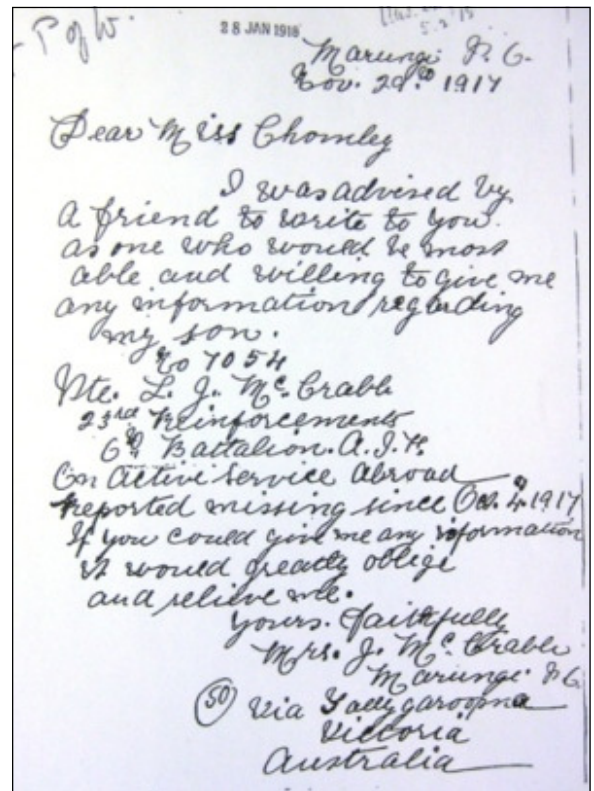 P of W.
28 JAN 1918
5.2.18
Marungi P.O.
Nov. 29th 1917
Dear Miss Chomley
I was advised by
a friend to write to you
as one who would be most
able and willing to give me
any information regarding
my son.
No 7054
Pte. L. J. McCrabb
23rd Reinforcements
6th Battalion. A.I.F.
On Active Service Abroad
reported missing since Oct. 4th 1917
If you could give me any information
it would greatly oblige
and relieve me.
Yours. faithfully
Mrs. J. McCrabb
Marungi P.O.
50 Via Tallygaroopna
Victoria
Australia